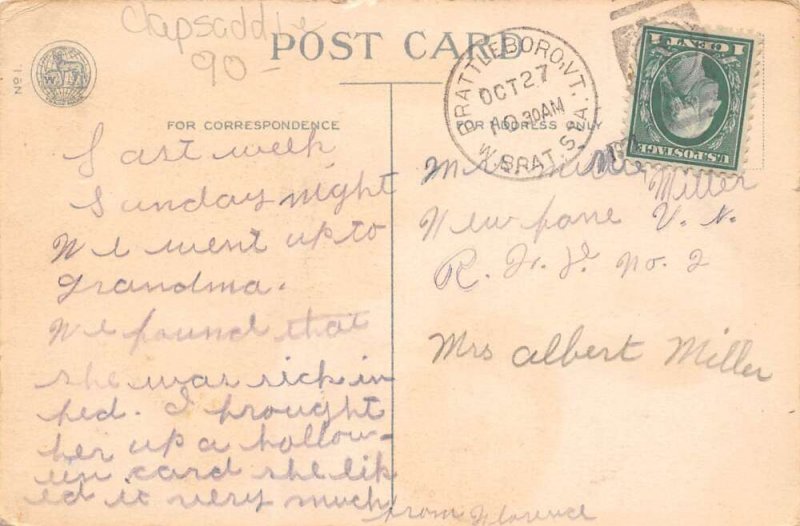 Clapsaddle
90-
POST CARD
N81
FOR CORRESPONDENCE
FOR ADDRESS ONLY
BRATTLEBORO, VT.
OCT 27
10 30 AM
W. BRAT. STA.
1 CENT 1
U.S. POSTAGE
Last week
Sunday night
We went up to
Grandma.
We found that
she was sick in
bed. I brought
her up a hollow-
een card she lik
ed it very much
from Florence
Miller
Newfane V.
R. F. D. No. 2
Mrs Albert Miller